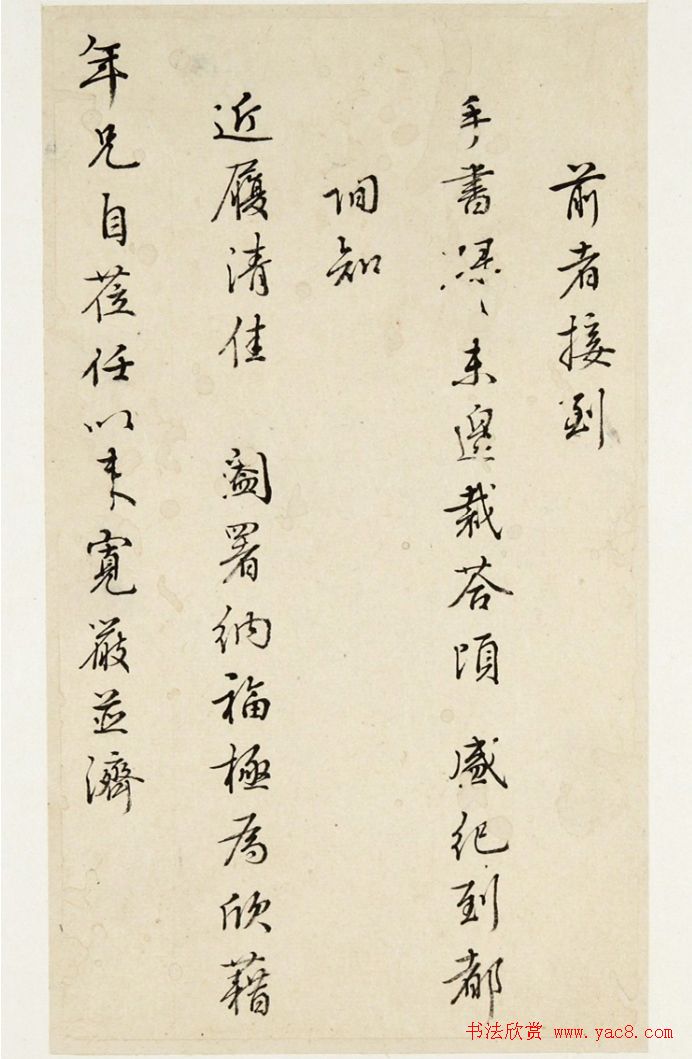 前者接到
手書憑〻未遑裁荅頃 盛紀到都
詢知
近履清佳 闔署納福極為欣藉
年兄自莅任以来寬嚴並濟
书法欣赏 www.yac8.com